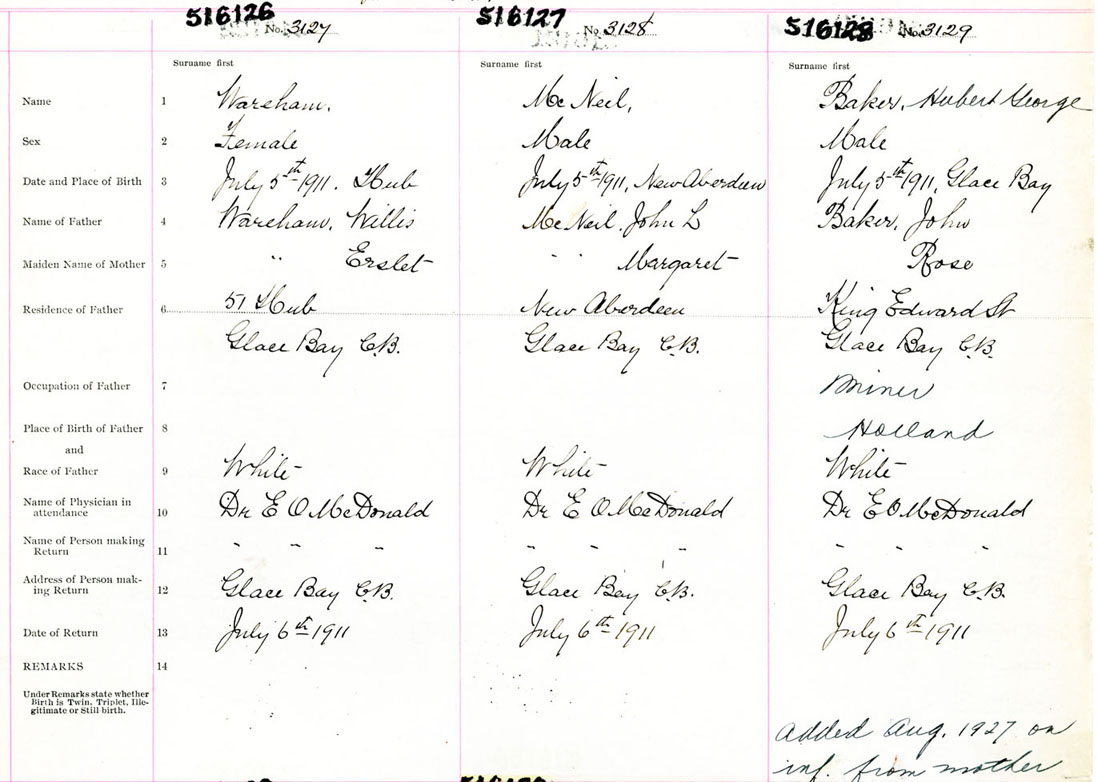 516126 No. 3127 516127 No. 3128 516128 No. 3129
Surname first Surname first Surname first
Name 1 Wareham. Mc Neil, Baker, Hubert George
Sex 2 Female Male Male
Date and Place of Birth 3 July 5th 1911. Hub July 5th 1911, New Aberdeen July 5th 1911, Glace Bay
Name of Father 4 Wareham, Willis Mc Neil. John L Baker, John
Maiden Name of Mother 5 " Erslet " Margaret Rose
Residence of Father 6 51 Hub New Aberdeen King Edward St
Glace Bay C.B. Glace Bay C.B. Glace Bay C.B.
Occupation of Father 7 Miner
Place of Birth of Father 8 Holland
and
Race of Father 9 White White White
Name of Physician in
attendance 10 Dr E O McDonald Dr E O McDonald Dr E O McDonald
Name of Person making
Return 11 " " " " " " " " "
Address of Person mak-
ing Return 12 Glace Bay C.B. Glace Bay C.B. Glace Bay C.B.
Date of Return 13 July 6th 1911 July 6th 1911 July 6th 1911
REMARKS 14
Under Remarks state whether
Birth is Twin, Triplet, Ille-
gitimate or Still birth.
added Aug. 1927 on
inf. from mother